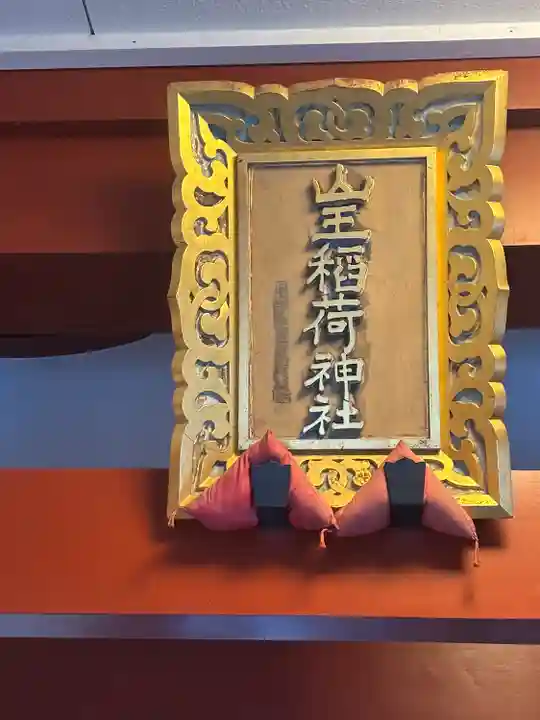 山王稲荷神社